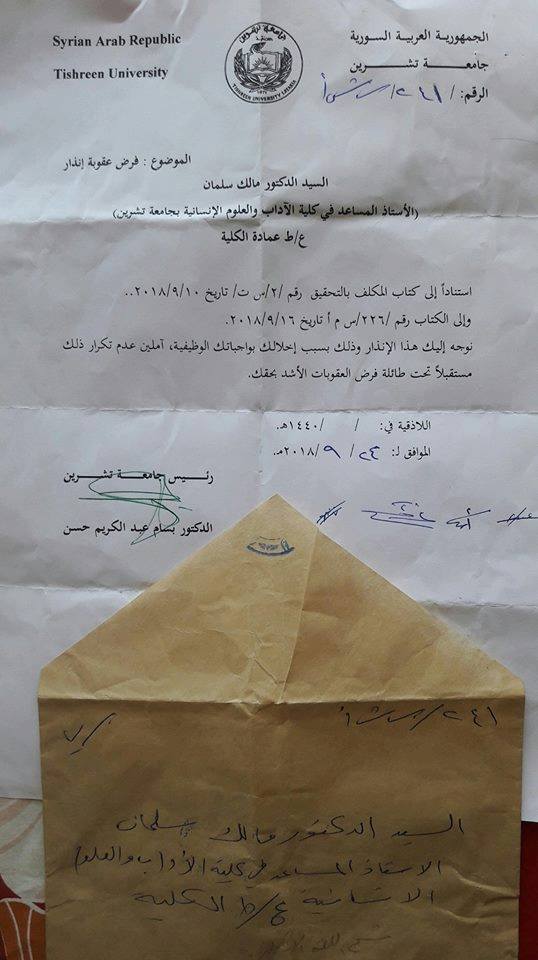 Syrian Arab Republic
Tishreen University
الجمهورية العربية السورية
جامعة تشرين
الرقم: /٢٤١/
جامعة تشرين
TISHREEN UNIVERSITY LATAKIA
الموضوع : فرض عقوبة إنذار
السيد الدكتور مالك سلمان
(الأستاذ المساعد في كلية الآداب والعلوم الإنسانية بجامعة تشرين)
ع/ط عمادة الكلية
استناداً إلى كتاب المكلف بالتحقيق رقم /٢/س ت/ تاريخ ٢٠١٨/٩/١٠..
وإلى الكتاب رقم /٢٢٦/س م أ تاريخ ٢٠١٨/٩/١٦.
نوجه إليك هذا الإنذار وذلك بسبب إخلالك بواجباتك الوظيفية، آملين عدم تكرار ذلك
مستقبلاً تحت طائلة فرض العقوبات الأشد بحقك.
اللاذقية في: / / ١٤٤٠هـ.
الموافق لـ: ٢٤ / ٩ /٢٠١٨مـ.
رئيس جامعة تشرين
الدكتور بسام عبد الكريم حسن
٢٤١/
السيد الدكتور مالك سلمان
الاستاذ المساعد في كلية الآداب والعلوم
الانسانية ع/ط الكلية